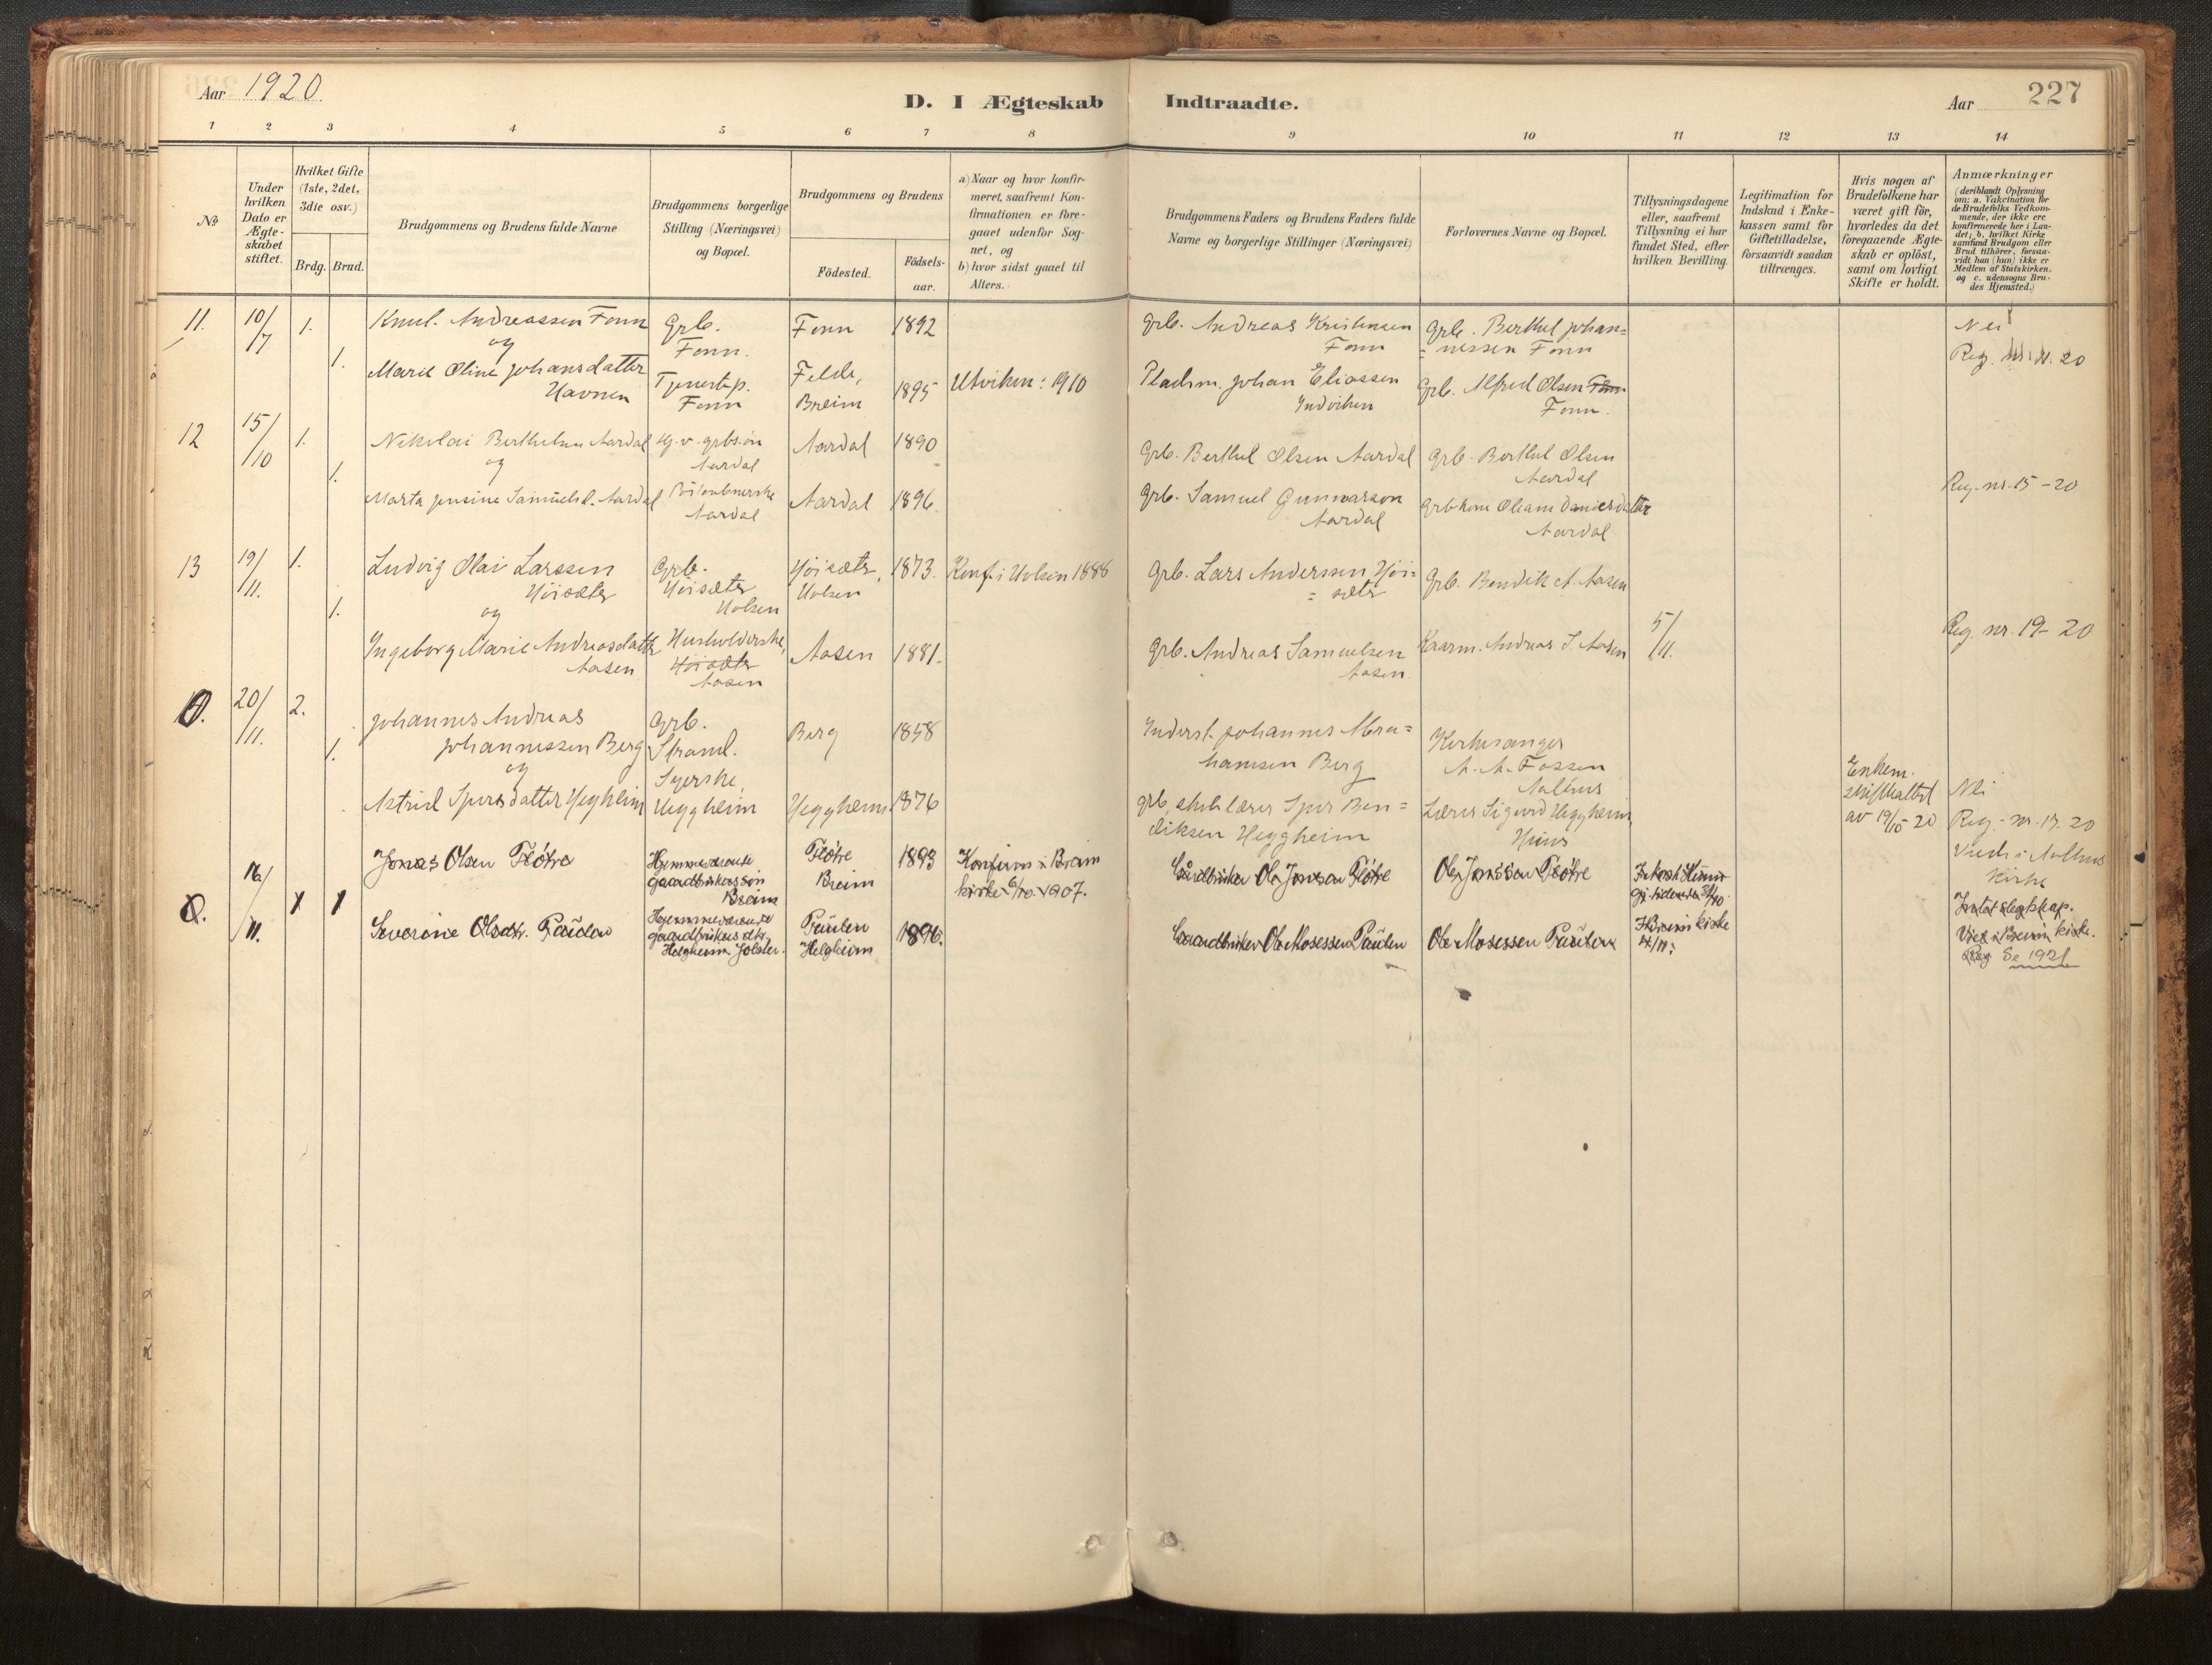 Aar 1920.
D. I Ægteskab Indtraadte.
Aar
227
1 2 3 4 5 6 7 8 9 10 11 12 13 14
No
Under hvilken Dato er Ægteskabet stiftet.
Hvilket Gifte (1ste, 2det, 3die osv.)
Brdg. Brud.
Brudgommens og Brudens fulde Navne
Brudgommens borgerlige Stilling (Næringsvei) og Bopæl.
Brudgommens og Brudens
Födested.
Födsels-aar.
a) Naar og hvor konfir-
meret, saafremt Kon-
firmationen er fore-
gaaet udenfor Sog-
net, og
b) hvor sidst gaaet til
Alters.
Brudgommens Faders og Brudens Faders fulde
Navne og borgerlige Stillinger (Næringsvei)
Forlovernes Navne og Bopæl.
Tillysningsdagene
eller, saafremt
Tillysning ei har
fundet Sted, efter
hvilken Bevilling.
Legitimation for
Indskud i Enke-
kassen samt for
Giftetilladelse,
forsaavidt saadan
tiltrænges.
Hvis nogen af
Brudefolkene har
været gift för,
hvorledes da det
foregaaende Ægte-
skab er oplöst,
samt om lovligt
Skifte er holdt.
Anmærkninger
(deriblandt Oplysning
om: a. Vakcination for
de Brudefolks Vedkom-
mende, der ikke ere
konfirmerede her i Lan-
det; b. hvilket Kirke
samfund Brudgom eller
Brud tilhörer, forsaa-
vidt han (hun) ikke er
Medlem af Statskirken.
og c. udensogns Bru-
des Hjemsted.)
11. 10/7 1. Knut Andreassen Fonn Grb. Fonn 1892 Grb. Andreas Kristensen Grb. Berthel Johan= Nei
og Fonn. Fonn =nessen Fonn Reg. 20
1. Marie Oline Johansdatter Tjenestep. Felde, 1895 Utviken: 1910 Pladsm. Johan Eliassen Grb. Alfred Olsen
Havnen Fonn Breim Indviken Fonn.
12 15/10 1. Nikolai Berthelsen Aardal Hj.v. grbs.søn Aardal 1890 Grb. Berthel Olsen Aardal Grb. Berthel Olsen
og Aardal Aardal
1. Marta Samuelsd. Aardal Aardal 1896 Grb. Samuel Gunnarson Grbkone Oleane Danielsdatter Reg. nr. 15-20
Aardal Aardal Aardal
13 19/11. 1. Ludvig Olai Larssen Grb. Høisæter, 1873. Konf. i Holsen 1888 Grb. Lars Anderssen Høi= Grb. Bendik A. Aasen
Høisæter Høisæter Holsen =sæter
og Holsen
1. Ingeborg Marie Andreasdatter Husholderske, Aasen 1881. Grb. Andreas Samuelsen Kaarm. Andreas S. Aasen 5/11. Reg. nr. 19-20
Aasen Høisæter Aasen
Aasen
0. 20/11. 2. Johannes Andreas Grb. Berg 1858 Inderst. Johannes Abra= Kirkesanger
1. Johannessen Berg Strand. hamsen Berg A. A. Fossen
og Syerske, Aalhus Enkem.
Astrid Sjursdatter Heggheim Heggheim Heggheim 1876 grb., skolelærer Sjur Ben= Lærer Sigurd Heggheim skifteattest Nei
diksen Heggheim av 19/10-20 Reg. nr. 17. 20
Viede i Aalhus
kirke
0. 16/11. 1 1 Jonas Olsen Fløtre Hjemmeværende Fløtre 1893 Konfirm. i Breim Gårdbruker Ole Jonsson Fløtre Ole Jonsson Fløtre
gaardbrukersøn Breim kirke 6/10. 1907.
Breim Intet slegtskap.
Severine Olsdtr. Paulen Hjemmeværende Paulen 1896. Gaardbruker Ole Mosessen Paulen Ole Mosessen Paulen I Breim kirke Viet i Breim kirke.
gaardbrukers dtr. Helgheim Reg Se 1921
Helgheim Jölster.